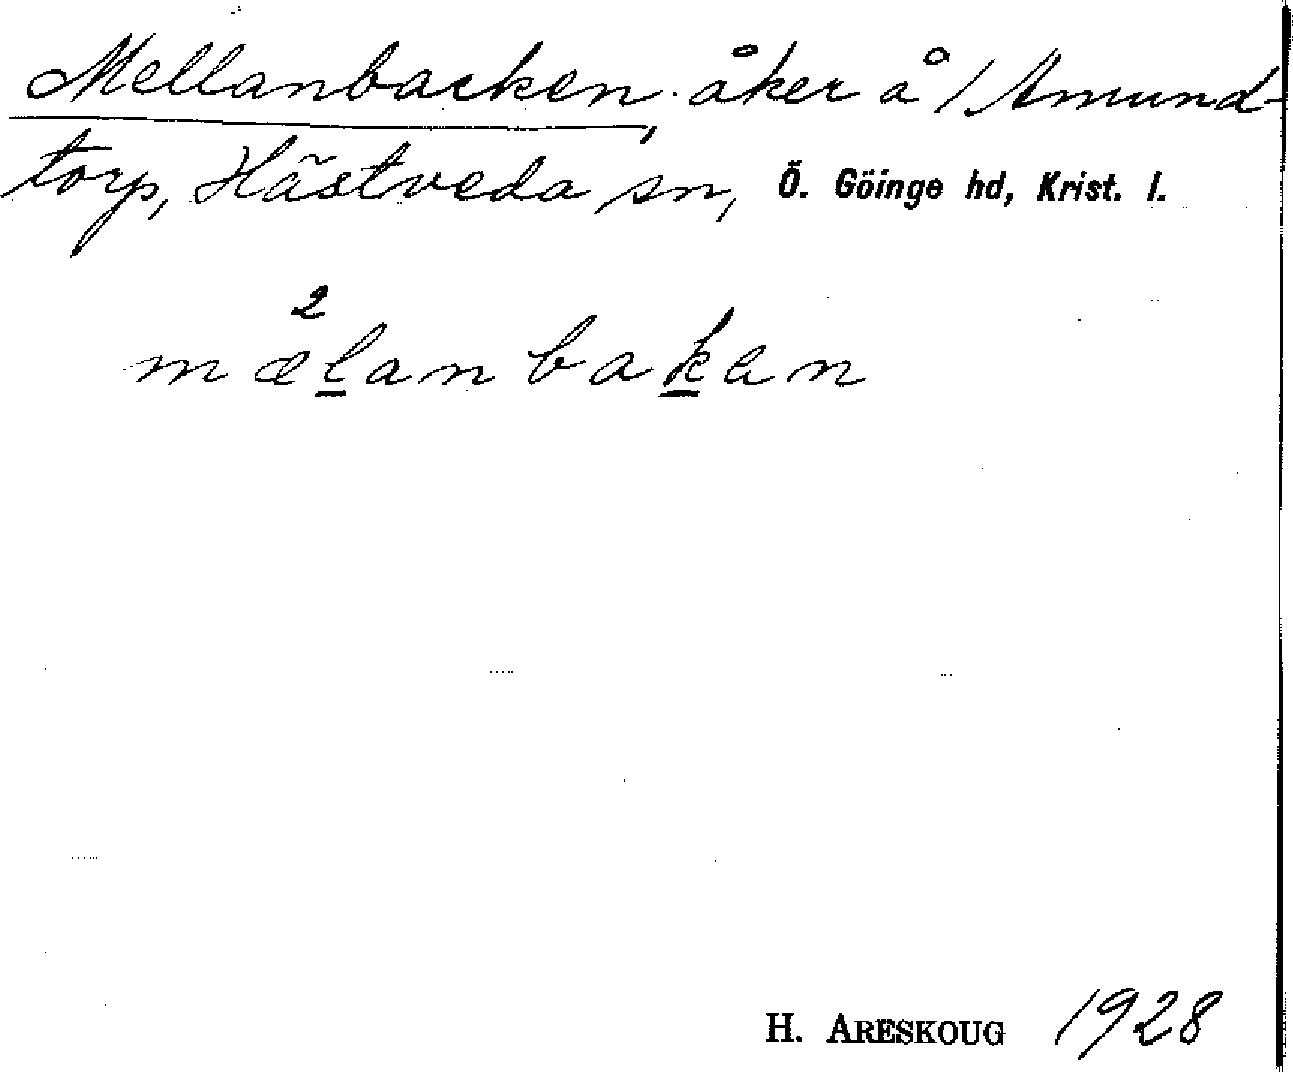 Mellanbacken, åker å /Amund-
torp, Hästveda sn, Ö. Göinge hd, Krist. l.
2
mælanbakan
H. ARESKOUG 1928